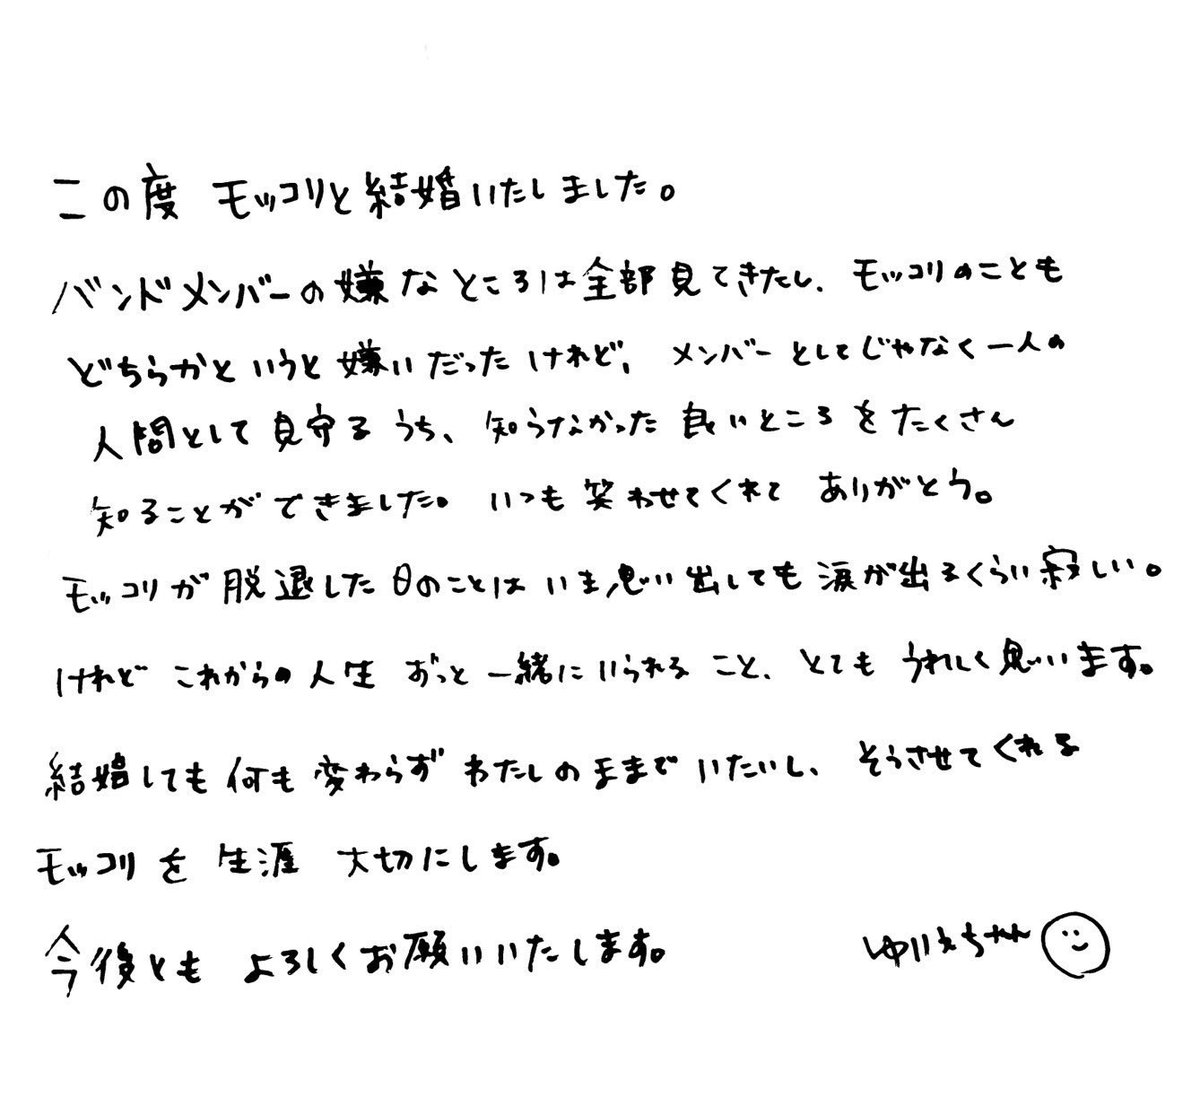 この度 モッコリと結婚いたしました。
バンドメンバーの嫌なところは全部見てきたし、モッコリのことも
どちらかというと嫌いだったけれど、メンバーとしてじゃなく一人の
人間として見守るうち、知らなかった良いところをたくさん
知ることができました。いつも笑わせてくれて ありがとう。
モッコリが脱退した日のことはいま思い出しても涙が出るくらい寂しい。
けれど これからの人生 ずっと一緒にいられること、とても うれしく思います。
結婚しても何も変わらず わたしのままでいたいし、そうさせてくれる
モッコリを生涯 大切にします。
今後とも よろしくお願いいたします。
ゆりえちゃん